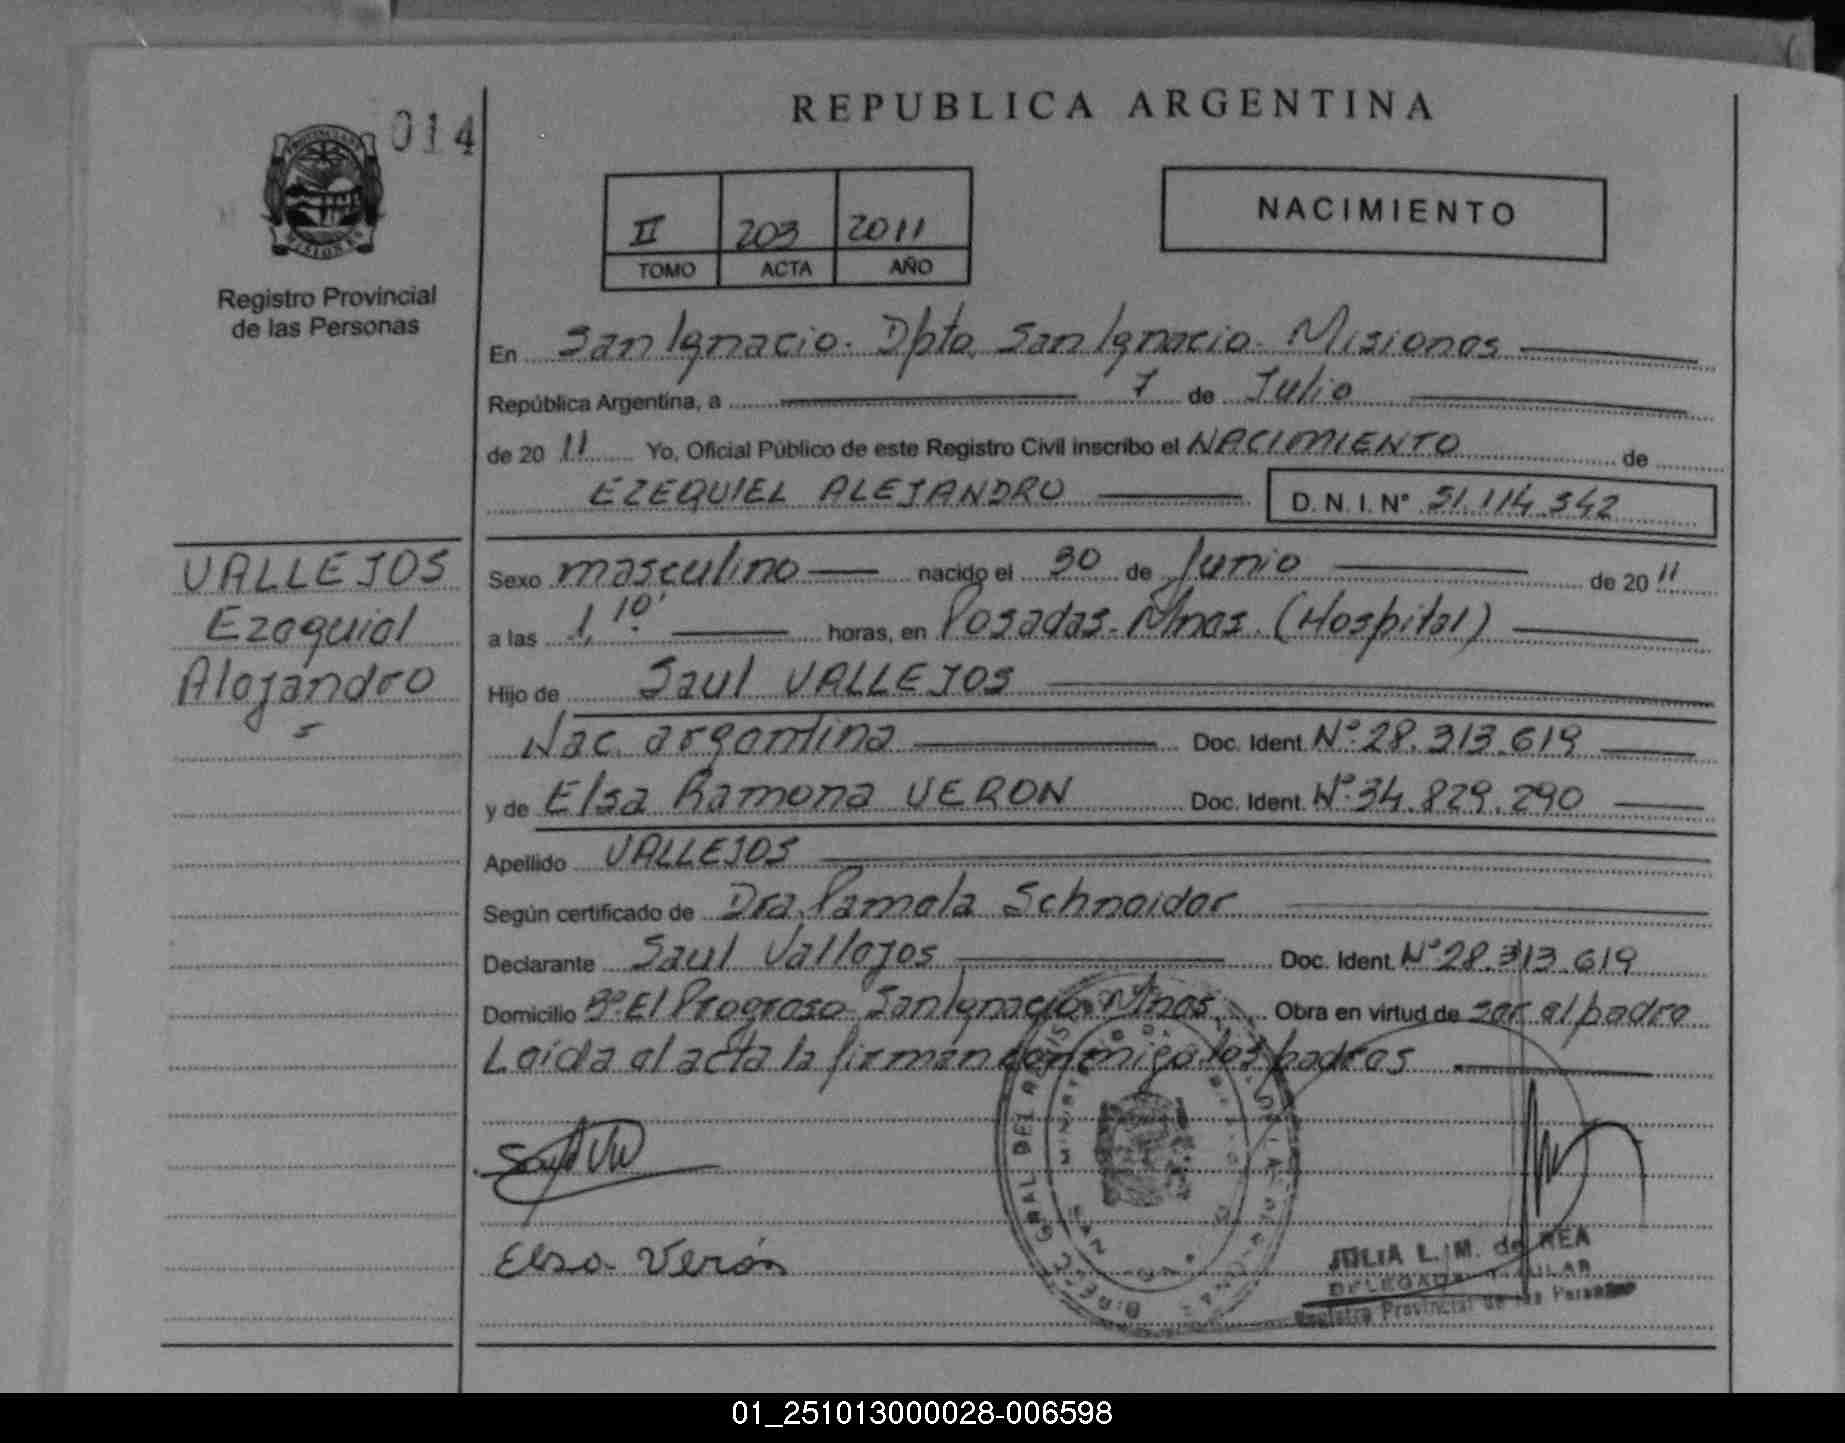 REPUBLICA ARGENTINA
014
II 203 2011
TOMO ACTA AÑO
NACIMIENTO
Registro Provincial
de las Personas
En San Ignacio. Dpto. San Ignacio. Misiones
República Argentina, a 7 de Julio
de 20 11 Yo, Oficial Público de este Registro Civil inscribo el NACIMIENTO de
EZEQUIEL ALEJANDRO D. N. I. N° 51.114.342
VALLEJOS
Ezequiel
Alejandro
Sexo masculino nacido el 30 de Junio de 20 11
a las 1,10' horas, en Posadas. Mnes. (Hospital)
Hijo de Saul VALLEJOS
Nac. argentina Doc. Ident. N° 28.313.619
y de Elsa Ramona VERON Doc. Ident. N° 34.829.290
Apellido VALLEJOS
Según certificado de Dra. Pamela Schneider
Declarante Saul Vallejos Doc. Ident. N° 28.313.619
Domicilio B° El Progreso San Ignacio Mnes. Obra en virtud de ser el padre
Leida el acta la firman conmigo los padres
Elsa Verón
JULIA L. M. de REA
Registro Provincial de las Personas
01_251013000028-006598